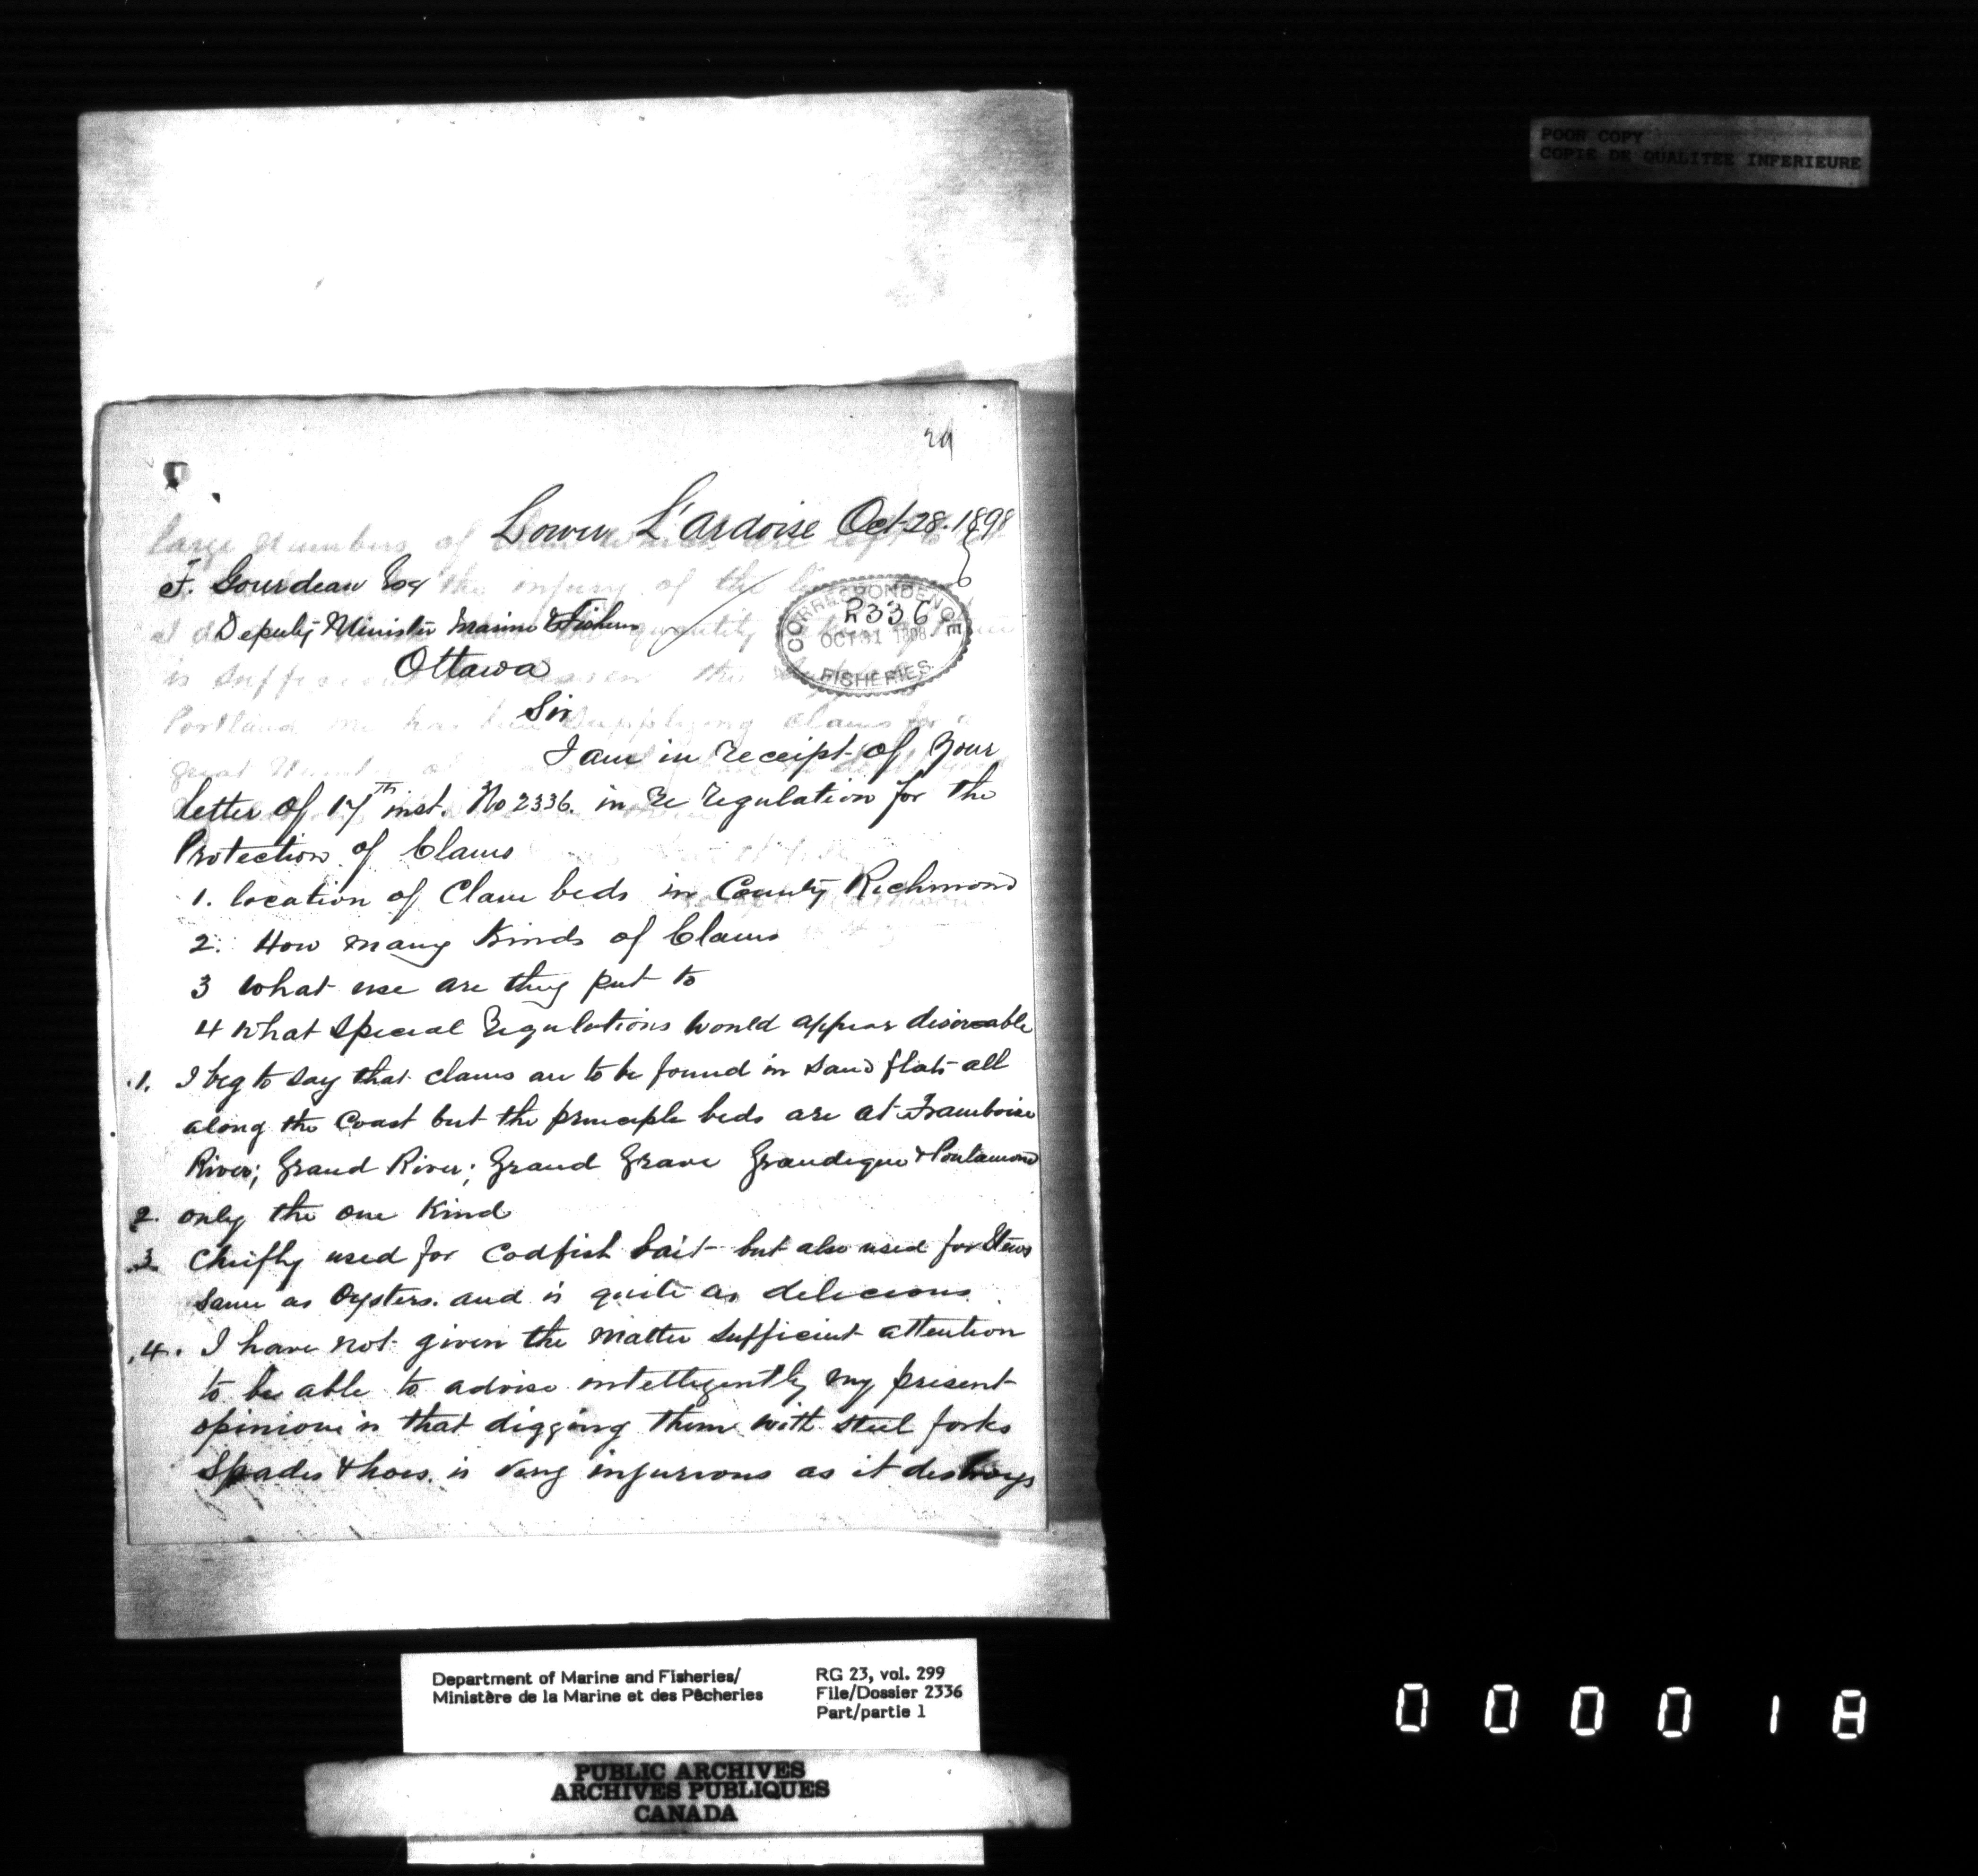 POOR COPY
COPIE DE QUALITEE INFERIEURE
Lower L'Ardoise Oct 28. 1898
F. Gourdeau Esq
Deputy Minister Marine & Fisheries
Ottawa
CORRESPONDENCE
2336
OCT 31 1898
FISHERIES
Sir
I am in receipt of your
letter of 17th inst. No 2336. in re regulation for the
Protection of Clams
1. location of Clam beds in County Richmond
2. How many Kinds of Clams
3 What use are they put to
4 What special regulations would appear disireable
.1. I beg to say that clams are to be found in sand flats all
along the Coast but the principle beds are at Framboise
River; Grand River; Grand Grave Grandique & Poulamond
2. only the one Kind
.3 Chiefly used for Codfish bait but also used for Stews
same as Oysters. and is quite as delicious.
.4. I have not given the matter sufficient attention
to be able to advise intelligently my present
opinion is that digging them with steel forks
Spades & hoes. is very injurious as it destroys
Department of Marine and Fisheries/
Ministère de la Marine et des Pêcheries
RG 23, vol. 299
File/Dossier 2336
Part/partie 1
PUBLIC ARCHIVES
ARCHIVES PUBLIQUES
CANADA
000018